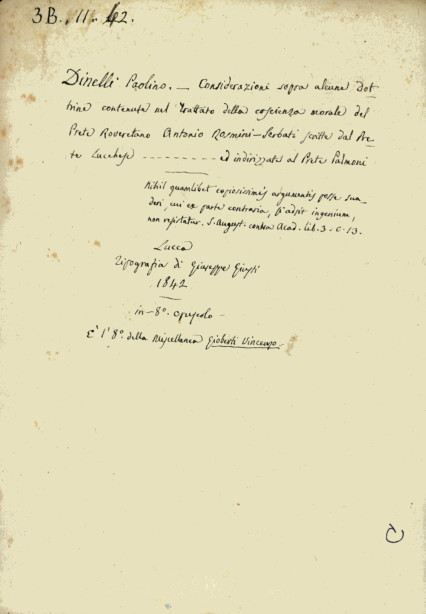 3B. 11. 42.
Dinelli Paolino. — Considerazioni sopra alcune dot
trine contenute nel trattato della coscienza morale del
Prete Roveretano Antonio Rosmini-Serbati scritte dal Pre-
te Lucchese - - - - - - - - - ed indirizzate al Prete Palmoni
Nihil quamlibet copiosissimis argumentis posse sua-
deri, cui ex parte contraria, si adsit ingenium,
non resistatur. S. August. contra Acad. lib. 3. c. 13.
Lucca
Tipografia di Giuseppe Giusti
1842
in-8º. opuscolo -
E' l' 8º. della Miscellanea Gioberti Vincenzo.